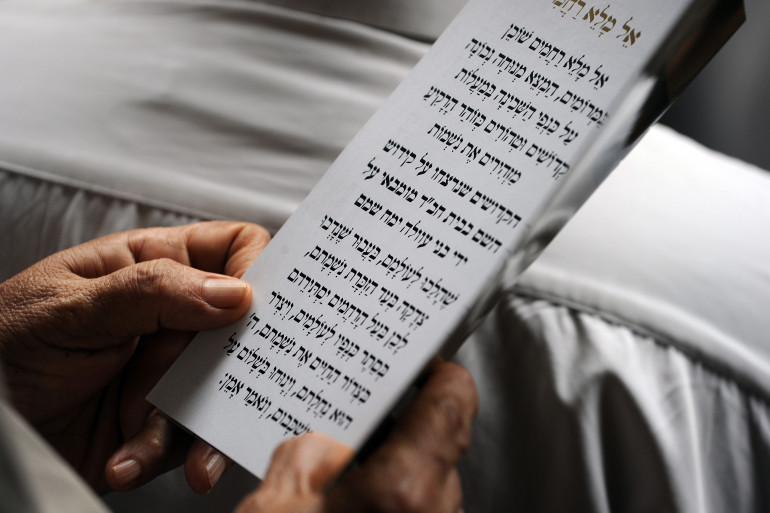 אֵל מָלֵא רַחֲמִים
אֵל מָלֵא רַחֲמִים שׁוֹכֵן
בַּמְּרוֹמִים, הַמְצֵא מְנוּחָה נְכוֹנָה
עַל כַּנְפֵי הַשְּׁכִינָה בְּמַעֲלוֹת
קְדוֹשִׁים וּטְהוֹרִים כְּזוֹהַר הָרָקִיעַ
מַזְהִירִים אֶת נִשְׁמוֹת
הקדושים שנרצחו על קידוש
השם בבית חב״ד מומבאי על
ידי בני עוולה ימח שמם
שֶׁהָלְכוּ לְעוֹלָמָם, בַּעֲבוּר שֶׁנָּדְבוּ
צְדָקָה בְּעַד הַזְכָּרַת נִשְׁמָתָם,
לָכֵן בַּעַל הָרַחֲמִים יַסְתִּירֵם
בְּסֵתֶר כְּנָפָיו לְעוֹלָמִים, וְיִצְרֹר
בִּצְרוֹר הַחַיִּים אֶת נִשְׁמָתָם, ה׳
הוּא נַחֲלָתָם, וְיָנוּחוּ בְּשָׁלוֹם עַל
מִשְׁכְּבָם, וְנֹאמַר אָמֵן.